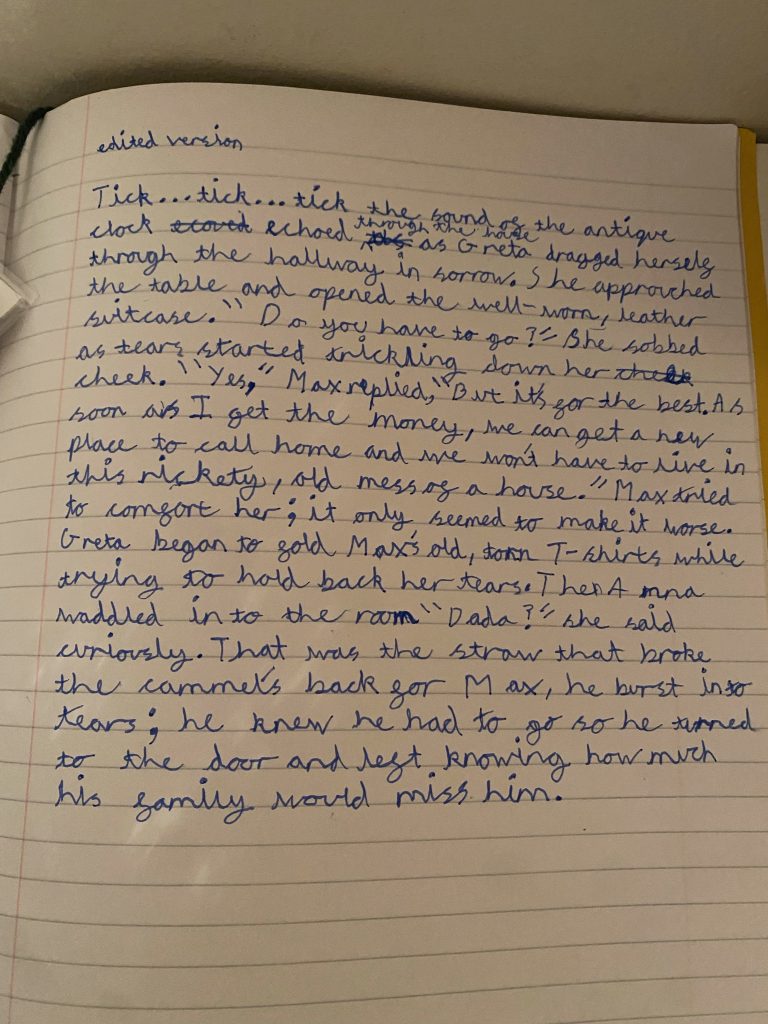 edited version
Tick...tick...tick the sound of the antique
through the house
clock echoed as Greta dragged herself
through the hallway in sorrow. She approuched
the table and opened the well-worn, leather
suitcase. "Do you have to go?" She sobbed
as tears started trickling down her
cheek. "Yes," Max replied, "But it's for the best. As
soon as I get the money, we can get a new
place to call home and we won't have to live in
this rickety, old mess of a house." Max tried
to comfort her; it only seemed to make it worse.
Greta began to fold Max's old, torn T-shirts while
trying to hold back her tears. Then Amna
waddled into the room "Dada?" she said
curiously. That was the straw that broke
the cammel's back for Max, he burst into
tears; he knew he had to go so he turned
to the door and left knowing how much
his family would miss him.